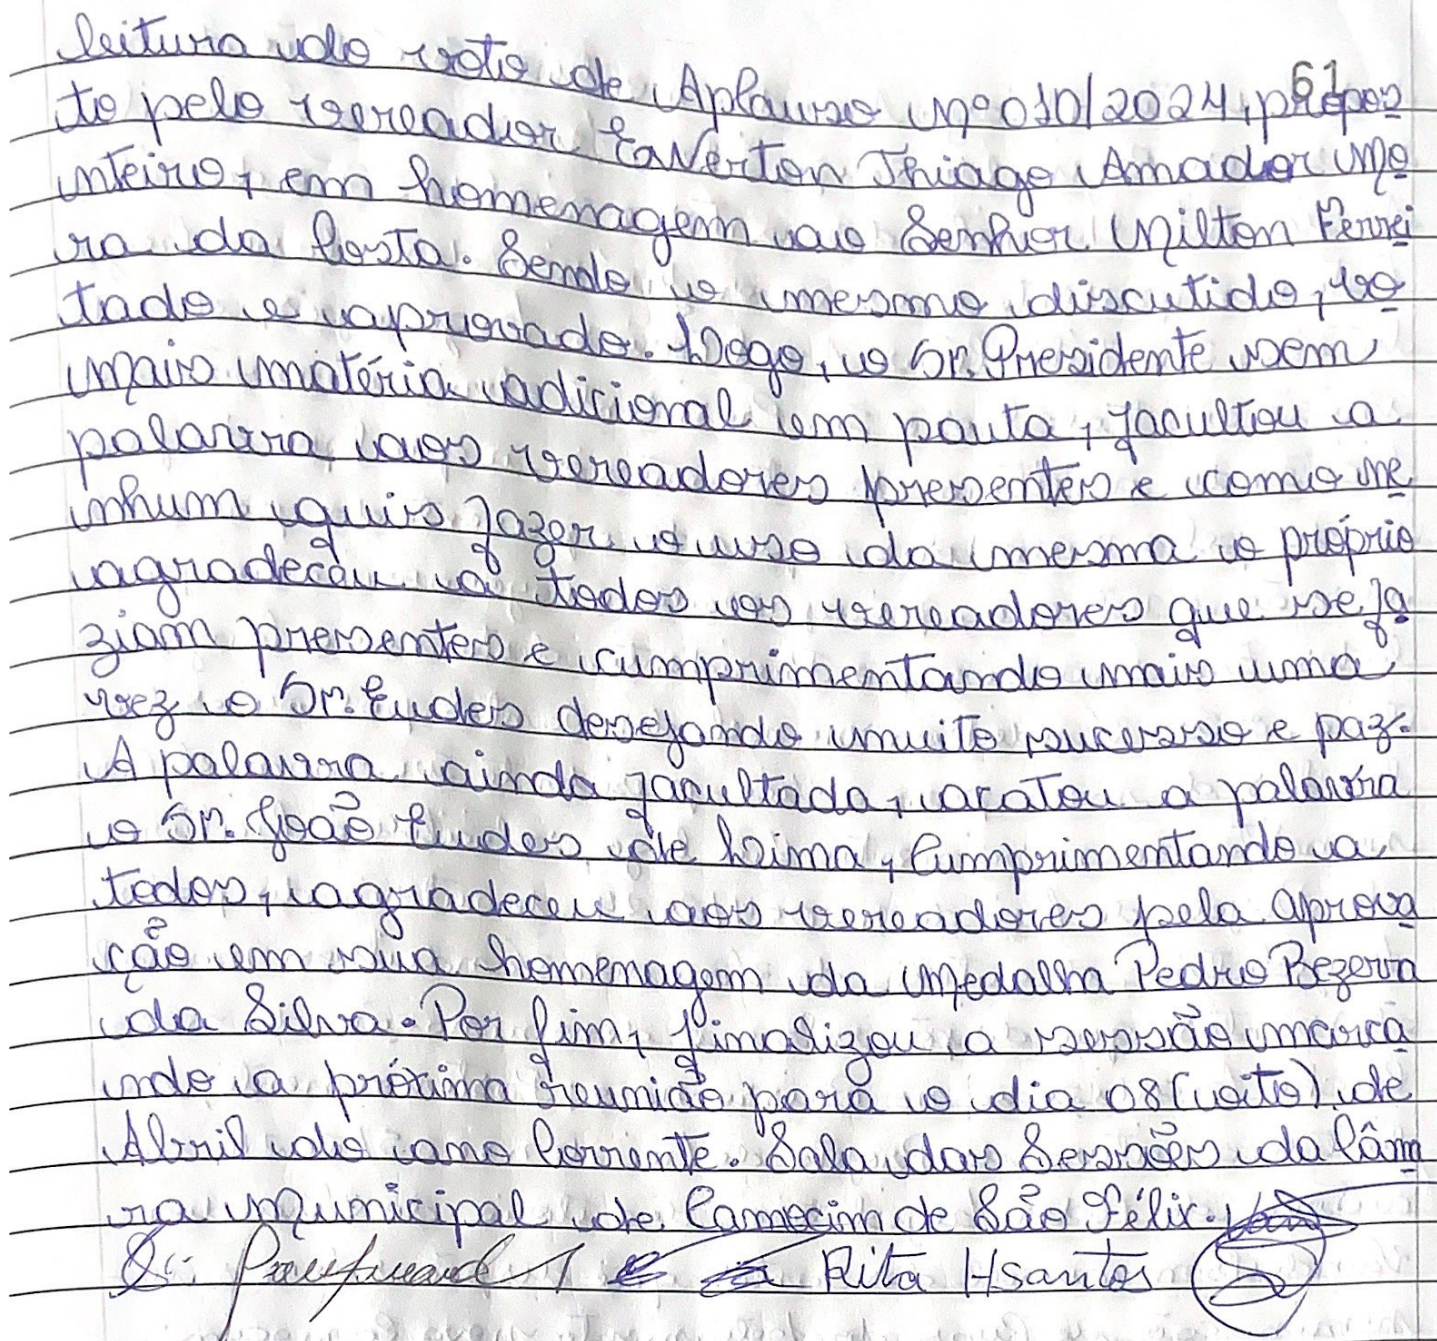 61
leitura do voto de Aplauso nº 010/2024, propos
to pelo vereador Eaverton Thiago Amador Mo
nteiro, em homenagem ao Senhor Milton Ferrei
ra da Costa. Sendo o mesmo discutido, vo
tado e aprovado. Logo, o Sr. Presidente sem
mais matéria adicional em pauta, facultou a
palavra aos vereadores presentes e como ne
nhum quis fazer o uso da mesma o próprio
agradeceu a todos os vereadores que se fa
ziam presentes e cumprimentando mais uma
vez o Sr. Eudes desejando muito sucesso e paz.
A palavra ainda facultada, acatou a palavra
o Sr. João Eudes de Lima, Cumprimentando a
todos, agradeceu aos vereadores pela aprova
ção em sua homenagem da Medalha Pedro Bezerra
da Silva. Por fim, finalizou a sessão marca
ndo a próxima reunião para o dia 08 (oito) de
Abril do ano Corrente. Sala das Sessões da Câm
ra Municipal de Camocim de São Félix.
Rita Hsantos